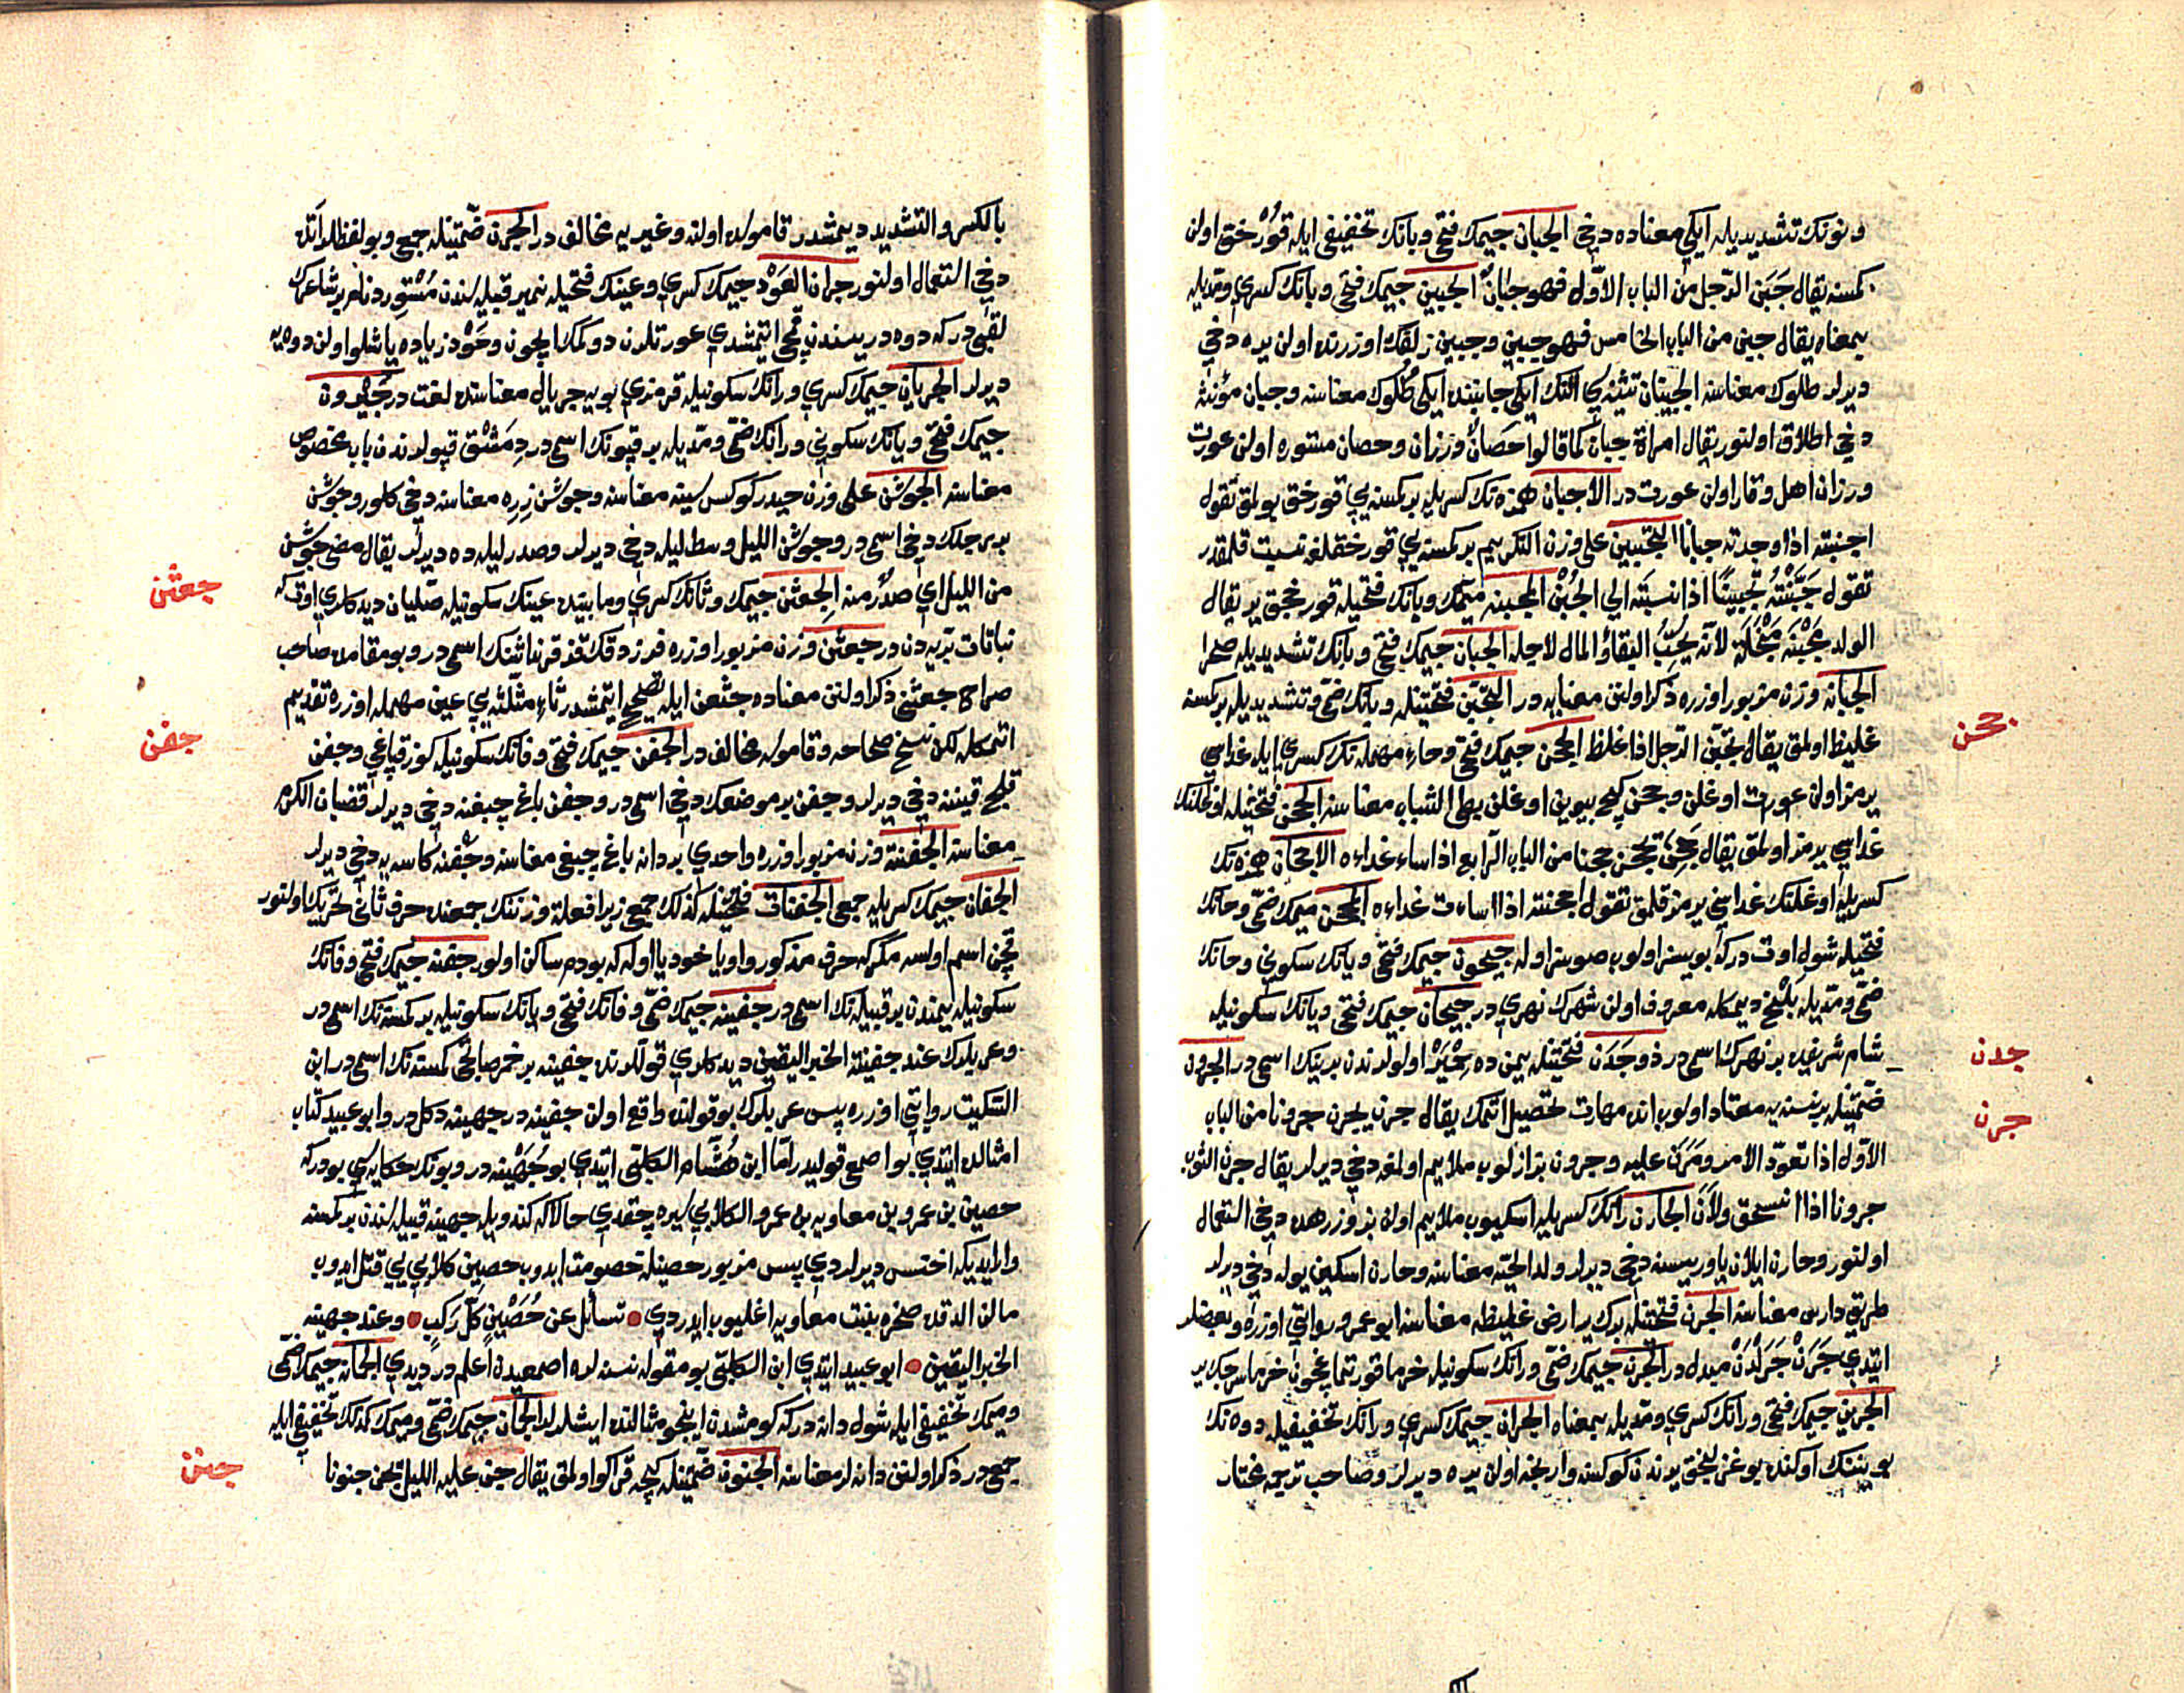 ونونك تشديديله ايكي معناده دخي الجبان جيمك فتحي وبانك تخفيفي ايله قورخق اولن
كمسنه يقال جَبَن الرّجل من الباب الاوّل فهو جبانٌ الجبين جيمك فتحي وبانك كسري ومدّيله
بمعناه يقال جبن من الباب الخامس فهو جبين وجبين زلفك اوزرنده اولن يره دخي
ديرلر طلوك معناسنه الجبينان تثنيه سي النك ايكي جانبنده ايكي طُلوك معناسنه وجبان مؤنثه
دخي اطلاق اولنور يقال امراة جبان كما قالوا حَصَانٌ ورزان وحصان مستوره اولن عورت
ورزان اهل وقار اولن عورت در الاجبان همزه نك كسريله بر كمسنه يي قورخق بولمق تقول
اجبنته اذا وجدته جبانا التجبين على وزن التكريم بر كمسنه يي قورخقلغه نسبت قلمقدر
تقول جَبَّنْتُه تَجبِينًا اذا نسبته الي الجُبْن المجبنه ميمك وبانك فتحيله قورخجق ير يقال
الولد مَجْبَنَه مَبْخَلَة لانّه يُحَبّ البقاءُ والمال لاجله الجبّان جيمك فتحي وبانك تشديديله صحرا
الجبانه وزن مزبور اوزره ذكر اولنن معنايه در التجبّن فتحتينله وبانك ضمّي وتشديديله بر كمسنه
غليظ اولمق يقال تجبّن الرّجل اذا غلظ الجحن جيمك فتحي وحاء مهمله نك كسري ايله غداسي
يرمز اولن عورت اوغلن وجحن كيچ بيوين اوغلن بطي الشباب معناسنه الجحن فتحتينله اوغلانك
غداسي يرمز اولمق يقال جَحِنَ يَجْحن جحنا من الباب الرّابع اذا ساء غداءه الاجحان همزه نك
كسريله اوغلنك غداسني يرمز قلمق تقول اجحنته اذا اساءت غداءه المجحن ميمك ضمّي وحانك
فتحيله شول اوت دركه بويسز اولوب صوسز اوله جيحون جيمك فتحي ويانك سكوني وحانك
ضمّي ومدّيله بَلْخ ديمكله معروف اولن شهرك نهري در جيحان جيمك فتحي ويانك سكونيله
شام شريفده بر نهرك اسمي در ذوجَدَن فتحتينله يمن ده حِمْيَرْ اولولرندن برينك اسمي در الجرون
ضمّتينله بر نسنه يه معتاد اولوب انده مهارت تحصيل اتمك يقال جرن يجرن جرونا من الباب
الاوّل اذا تعوّد الامر ومَرَن عليه وجرون بز ازلوب ملايم اولمغه دخي ديرلر يقال جرن الثوب
جرونا اذا انسحق ولاَنَ الجارن رانك كسريله اسكيوب ملايم اولن بز وزرهده دخي استعمال
اولنور وجارن ايلان ياوريسنه دخي ديرلر ولد الحيّه معناسنه وجارن اسكين يوله دخي ديرلر
طريق دارس معناسنه الجرن فتحتينله برك ير ارض غليظه معناسنه ابو عمرو روايتي اوزره وبعضلر
ايتدي جَرَنْ جَرَلْدَنْ مبدله در الجرن جيمك ضمّي ورانك سكونيله خرما قورتماغچون خرماسر جك ير
الجرين جيمك فتحي ورانك كسري ومدّيله بمعناه الجران جيمك كسري ورانك تخفيفيله دوه نك
بوينك اوكنده بوغزلنجق يرندن كوكسنه وارنجه اولن يره ديرلر وصاحب ترجمه مختار
جحن
جدن
جرن
بالكسر والتشديد ديمشدر قامولده اولنه وغيريه مخالف در الجرن ضمّتينله جمعي وبو لفظلر آتده
دخي استعمال اولنور جران العَوْد جيمك كسري وعينك فتحيله نمير قبيله لسندن مُسْتَوِرد نام بر شاعرك
لقبي در كه دوه دريسندن قمچي ايتمشدي عورتلرن دوكمك ايچون وعَوْد زياده ياشلو اولن دوه يه
ديرلر الجريان جيمك كسري ورانك سكونيله قرمزي بويه جريال معناسنده لغت در جَيْرون
جيمك فتحي ويانك سكوني ورانك ضمّي ومدّيله بر قپونك اسمي در دِمَشْق قپولرندن باب مخصوص
معناسنه الجوشن على وزن حيدر كوكس سينه معناسنه وجوشن زِرِه معناسنه دخي كلور وجوشن
بر رجلك دخي اسمي در وجوشن الليل وسط ليله دخي ديرلر وصدر ليله ده ديرلر يقال مضي جوشن
من الليل اي صدر منه الجعثن جيمك وثانك كسري ومابينده عينك سكونيله صلّيان ديدكلري اوت كه
نباتات برّيه دن در جعثن وزن مزبور اوزره فرزدقك قز قرنداشنك اسمي در وبو مقامده صاحب
صراح جعثني ذكر اولنن معناده جثعن ايله تصحيح ايتمشدر ثاء مثلّثه يي عين مهمله اوزره تقديم
اتمكله لكن نسخ صحاحه وقاموسه مخالف در الجفن جيمك فتحي وفانك سكونيله كوز قپاغي وجفن
قلج قيننه دخي ديرلر وجفن بر موضعك دخي اسمي در وجفن باغ چبغنه دخي ديرلر قضبان الكرم
معناسنه الجفنة وزن مزبور اوزره واحدي بر دانه باغ چبغي معناسنه وجفنه كاسه يه دخي ديرلر
الجفان جيمك كسريله جمعي الجفنات فتحتينله كذلك جمعي زيرا فعلة وزننك جمعنده حرف ثاني تحريك اولنور
قچن اسم اولسه مكر كه حرف مذكور واو يا خود يا اوله كه بو دم ساكن اولور جفنه جيمك فتحي وفانك
سكونيله يمندن بر قبيله نك اسمي در جفينه جيمك ضمّي وفانك فتحي ويانك سكونيله بر كمسنه نك اسمي در
وعربلرك عند جفينة الخبر اليقين ديدكلري قوللرنده جفينه بر خمر صاتجي كمسنه نك اسمي در ابن
السّكيت روايتي اوزره پس عربلرك بو قولنده واقع اولن جفينه در جهينه دكل در وابو عبيد كتاب
امثالده ايتدي بو اصمعي قوليدر امّا ابن هُشّام الكلبي ايتدي بو جُهَيْنه در وبونك حكايه سي بودر كه
حصين بن عمرو بن معاويه بن عمرو الكلابي سفره چقدي حالا كه كندويله جهينه قبيله لسندن بر كمسنه
وار ايديكه اخنس ديرلردي پس مزبور حصينله خصومت ايدوب حصين كلابي يي قتل ايدوب
مالن الدقده صخره بنت معاويه اغليوب ايدردي • تسأل عن حُصَيْنٍ كلّ رَكبٍ • وعند جهينه
الخبر اليقين • ابو عبيد ايتدي ابن الكلبي بو مقوله نسنه لرده اصمعيدن اعلم در ديدي الجمانه جيمك ضمّي
وميمك تخفيفي ايله شول دانه در كه كومشدن اينجو مثالنده ايشلرلر الجمان جيمك ضمّي وميمك كذلك تخفيفي ايله
جمعي در ذكر اولنن دانه لر معناسنه الجنون ضمّتينله كيجه قراكو اولمق يقال جنّ عليه الليل يجنّ جنونا
جعثن
جفن
جنن